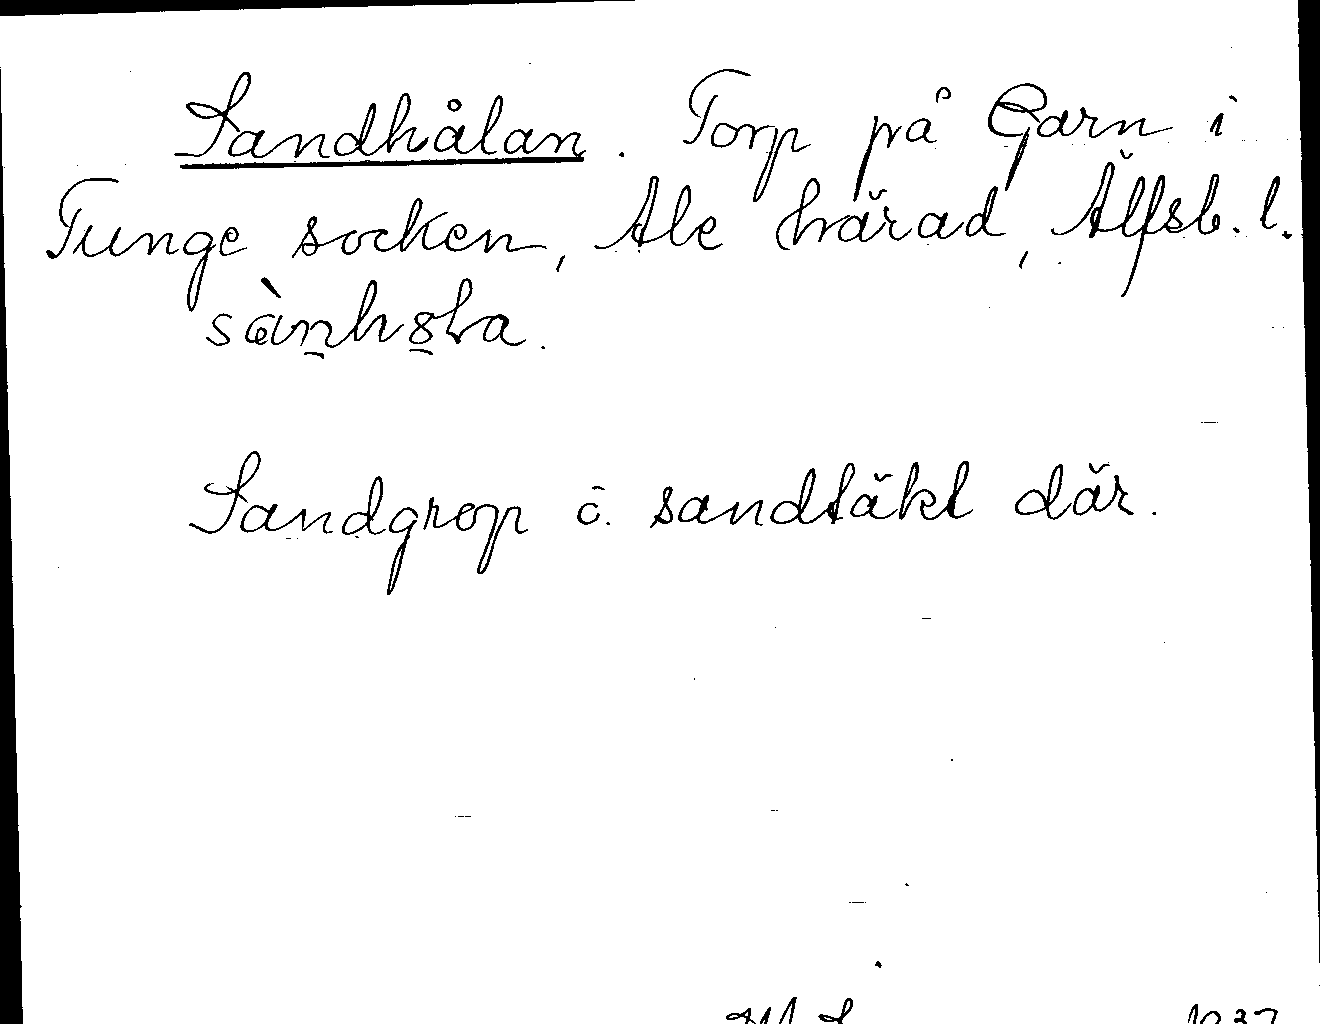 Sandhålan. Torp på Garn i
Tunge socken, Ale härad, Älfsb. l.
Sandgrop o. sandtäkt där.